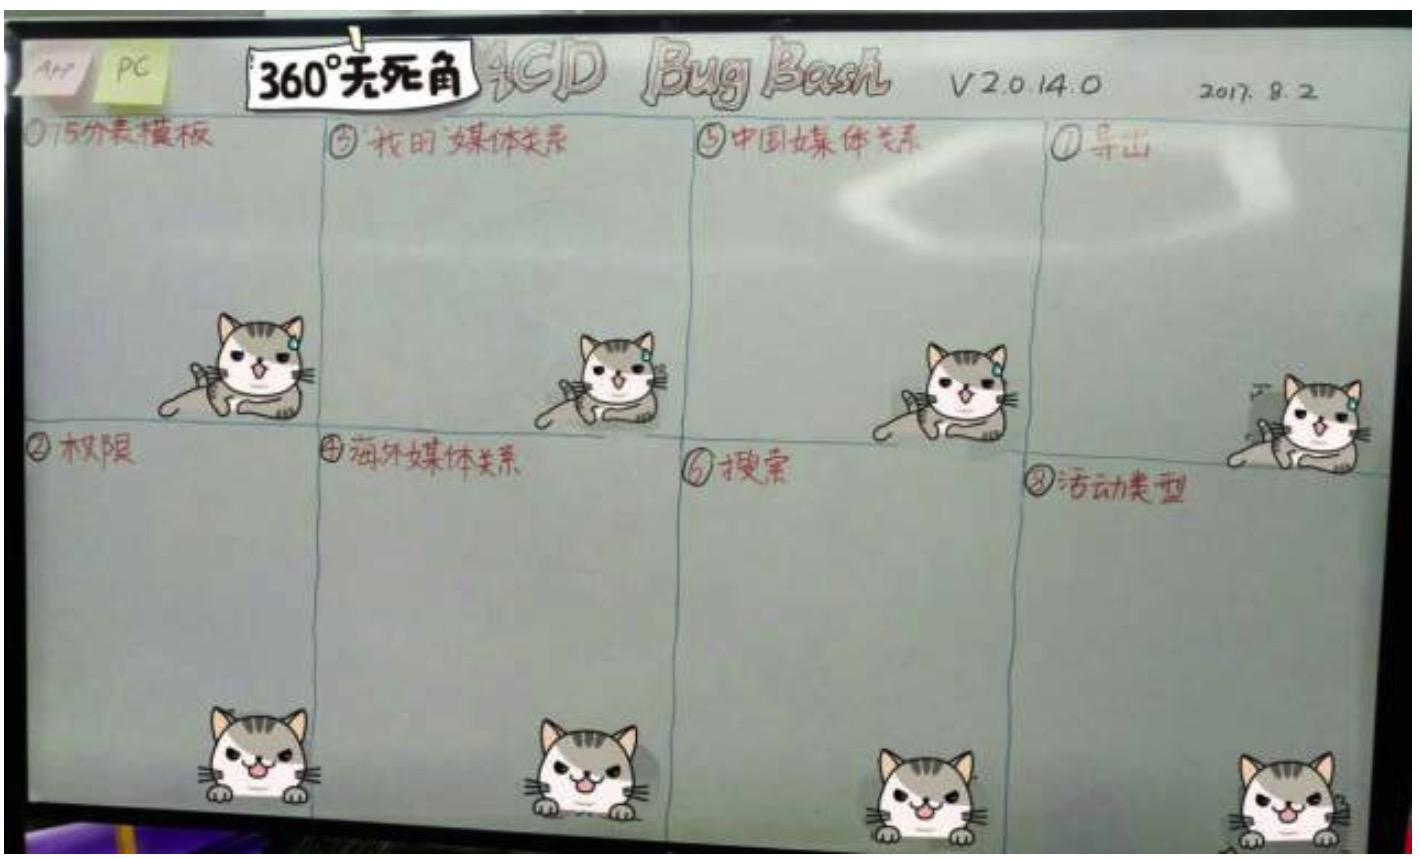 App
PC
360°无死角
ACD Bug Bash V2.0.14.0 2017.8.2
③我的媒体关系
⑤中国媒体关系
⑦导出
②权限
④海外媒体关系
⑥搜索
⑧活动类型